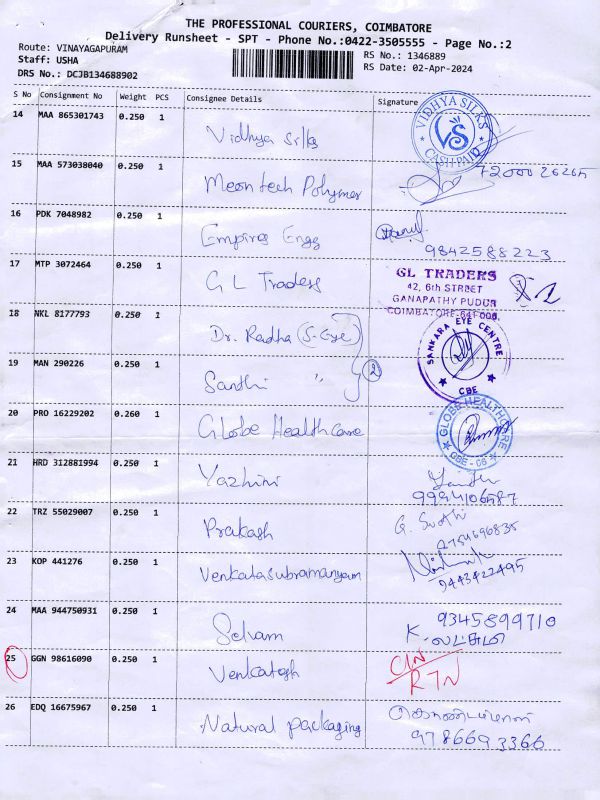 THE PROFESSIONAL COURIERS, COIMBATORE
Delivery Runsheet - SPT - Phone No.:0422-3505555 - Page No.:2
Route: VINAYAGAPURAM
RS No.: 1346889
Staff: USHA
RS Date: 02-Apr-2024
DRS No.: DCJB134688902
S No Consignment No Weight PCS Consignee Details Signature
14 MAA 865301743 0.250 1 Vidhya Silks
VIDHYA SILKS
VS
CASH PAID
15 MAA 573038040 0.250 1 Meontech Polymer
7200026265
16 PDK 7048982 0.250 1 Empires Engg
9842588223
17 MTP 3072464 0.250 1 G L Traders
GL TRADERS
42, 6th STREET
GANAPATHY PUDUR
COIMBATORE-641 006.
18 NKL 8177793 0.250 1 Dr. Radha (S-Eye)
SANKARA EYE CENTRE
CBE
19 MAN 290226 0.250 1 Santhi "
2
20 PRO 16229202 0.260 1 Globe Healthcare
GLOBE HEALTHCARE
CBE - 06
21 HRD 312881994 0.250 1 Yazhini
9994106587
22 TRZ 55029007 0.250 1 Prakash
23 KOP 441276 0.250 1 Venkatasubramanyam
9443422495
24 MAA 944750931 0.250 1 Selvam
9345899710
K. லட்சுமி
25 GGN 98616090 0.250 1 Venkatesh
RTN
26 EDQ 16675967 0.250 1 Natural packaging
9786693366